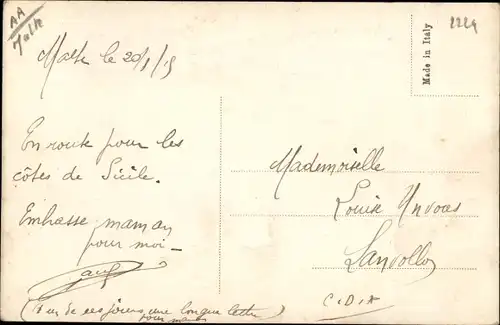 AA
Malte
2224
Made in Italy
Malte le 20/1/19
En route pour les
côtes de Sicile.
Embrasse maman
pour moi –
Mademoiselle
Louise
(Un de ces jours une longue lettre
pour